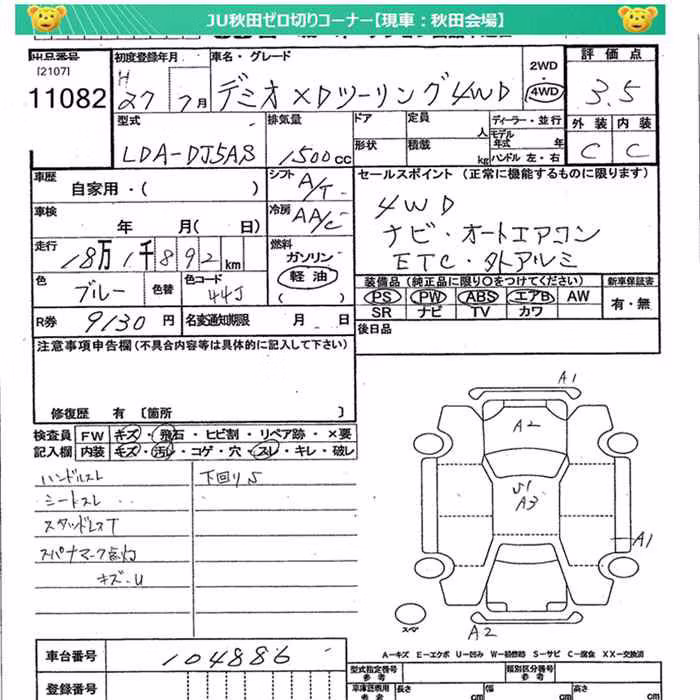 JU秋田ゼロ切りコーナー【現車：秋田会場】
出品番号
[2107]
11082
初度登録年月
H 27年 7月
車名・グレード
デミオ XDツーリング 4WD
2WD
4WD
評価点
3.5
型式
LDA-DJ5AS
排気量
1500cc
ドア
形状
定員 人
積載 kg
ディーラー・並行
モデル年式 年
ハンドル 左・右
外装 内装
C C
車歴
自家用・( )
シフト A/T
車検
年 月( 日)
冷房 AA/C
走行
18万1千892km
燃料
ガソリン
軽油
( )
色
ブルー
色替
色コード
44J
R券 9130円
名変通知期限 月 日
セールスポイント (正常に機能するものに限ります)
4WD
ナビ・オートエアコン
ETC・外アルミ
装備品 (純正品に限り〇をつけてください)
PS PW ABS エアB AW
SR ナビ TV カワ
新車保証書
有・無
後日品
注意事項申告欄(不具合内容等は具体的に記入して下さい)
修復歴 有 〔箇所 〕
検査員記入欄
FW キズ・飛石・ヒビ割・リペア跡・×要
内装 キズ・汚レ・コゲ・穴・スレ・キレ・破レ
ハンドルスレ
下回りS
シートスレ
スタッドレスT
スパナマーク点灯
キズ・U
A1
A2
S1
A3
A1
A2
スペア
A-キズ E-エクボ U-凹み W-補修跡 S-サビ C-腐食 XX-交換済
車台番号 104886
登録番号
型式指定番号 参考
類別区分番号 参考
車庫証明用 参考
長さ cm
幅 cm
高さ cm